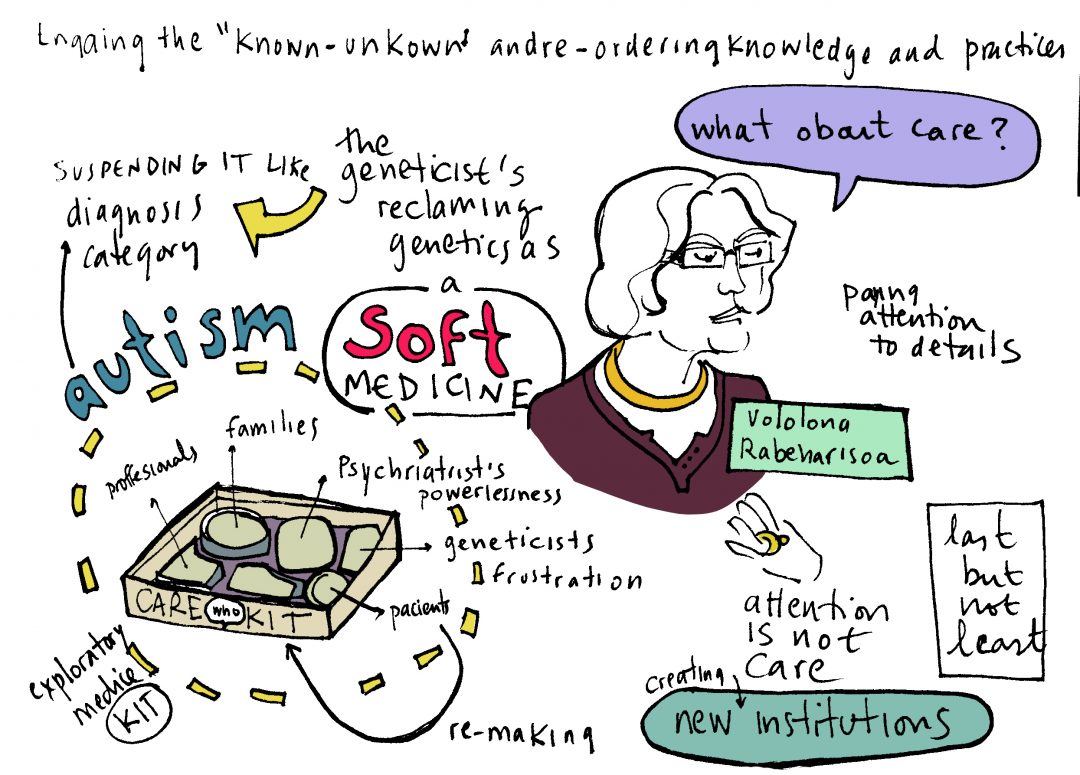 Engaing the "Known-unkown" and re-ordering knowledge and practices
what about care?
SUSPENDING IT LIKE
diagnosis
category
the
geneticist's
reclaming
genetics as
a
Soft
MEDICINE
autism
paying
attention
to details
Vololona
Rabeharisoa
families
proffesionals
Psychriatrist's
powerlessness
geneticists
frustration
pacients
CARE who KIT
exploratory
KIT
re-making
attention
is not
care
creating
new institutions
last
but
not
least